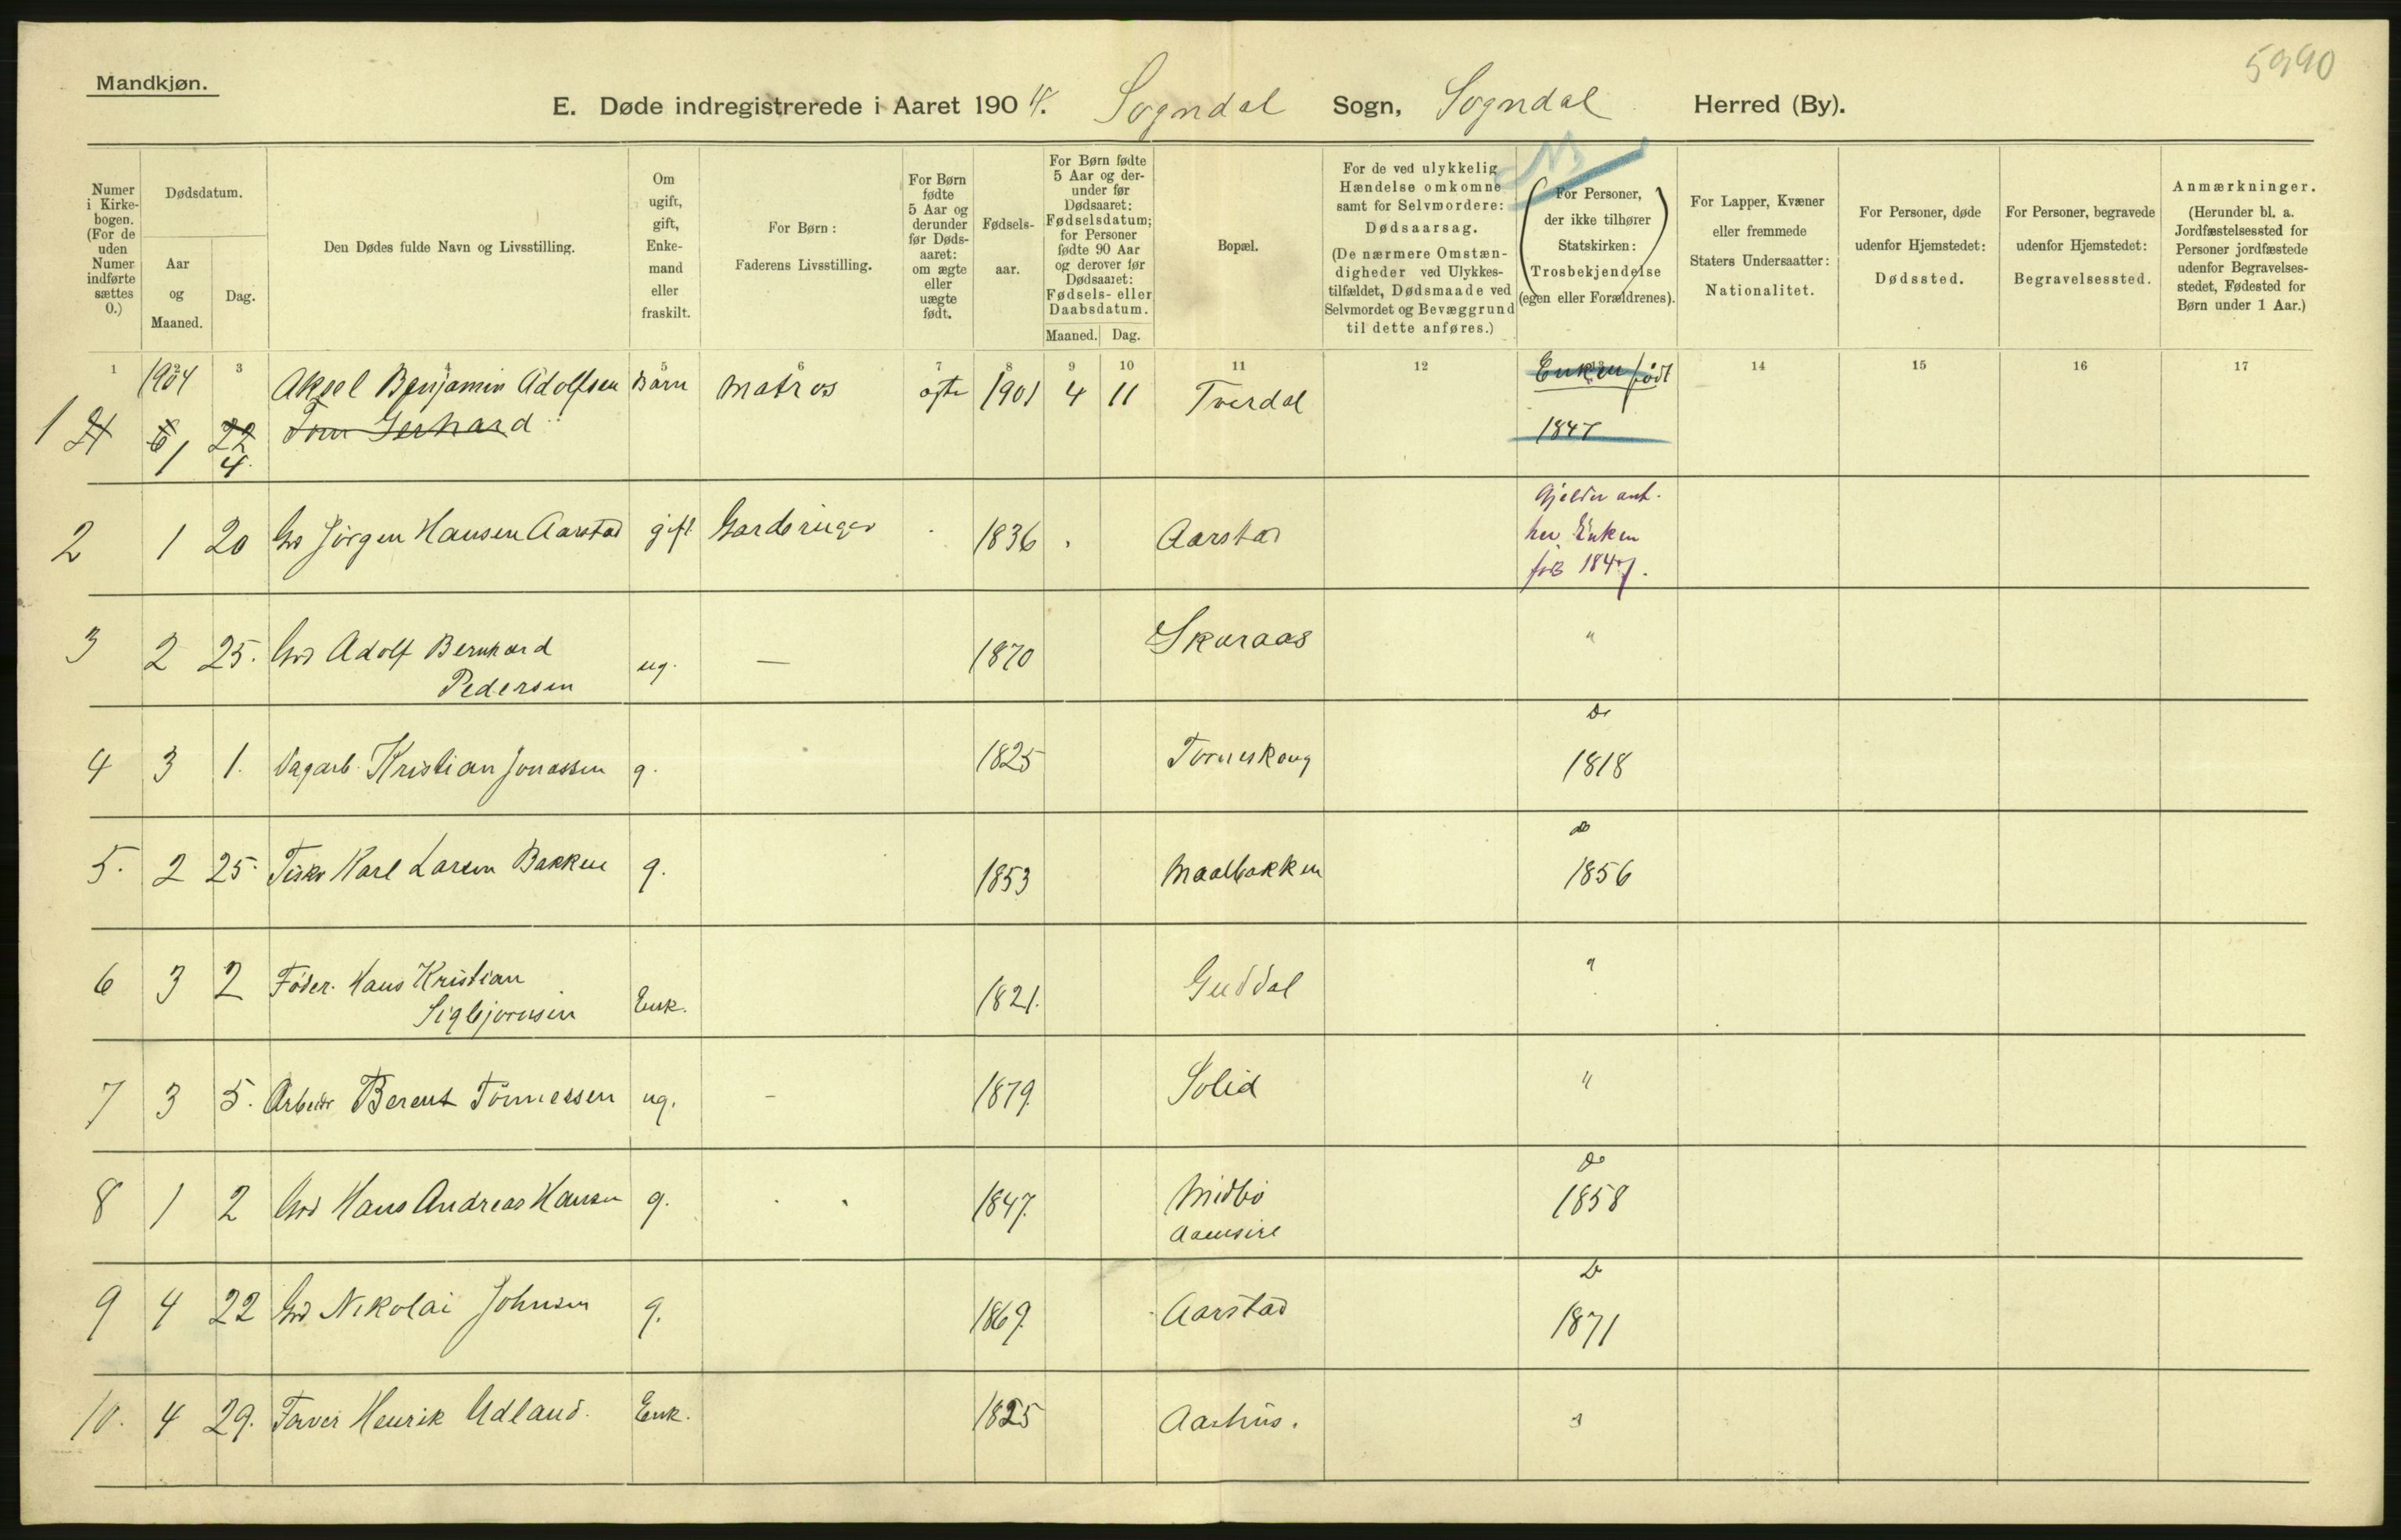 5990
Mandkjøn.
E. Døde indregistrerede i Aaret 1904. Sogndal Sogn, Sogndal Herred (By).
Numer i Kirkebogen. (For de uden Numer indførte sættes 0.)
Dødsdatum.
Aar og Maaned.
Dag.
Den Dødes fulde Navn og Livsstilling.
Om ugift, gift, Enkemand eller fraskilt.
For Børn: Faderens Livsstilling.
For Børn fødte 5 Aar og derunder før Dødsaaret: om ægte eller uægte født.
Fødselsaar.
For Børn fødte 5 Aar og derunder før Dødsaaret: Fødselsdatum; for Personer fødte 90 Aar og derover før Dødsaaret: Fødsels- eller Daabsdatum.
Maaned. Dag.
Bopæl.
For de ved ulykkelig Hændelse omkomne samt for Selvmordere: Dødsaarsag. (De nærmere Omstændigheder ved Ulykkestilfældet, Dødsmaade ved Selvmordet og Bevæggrund til dette anføres.)
NB
For Personer, der ikke tilhører Statskirken: Trosbekjendelse (egen eller Forældrenes).
For Lapper, Kvæner eller fremmede Staters Undersaatter: Nationalitet.
For Personer, døde udenfor Hjemstedet: Dødssted.
For Personer, begravede udenfor Hjemstedet: Begravelsessted.
Anmærkninger. (Herunder bl. a. Jordfæstelsessted for Personer jordfæstede udenfor Begravelsesstedet, Fødested for Børn under 1 Aar.)
1 2 3 4 5 6 7 8 9 10 11 12 13 14 15 16 17
1904 Aksel Benjamin Adolfsen Barn Matros ægte 1901 4 11 Tverdal Enken født
1 6 22 Tom Gerhard 1847
1 4.
2 1 20 Jörgen Hansen Aarstad gift 1836 Aarstad Gjelder ant. her Enken föd 1847.
3 2 25. Adolf Bernhard Pedersen ug. — 1870 Skaraas "
4 3 1. Dagarb. Kristian Jonassen g. 1825 Torneskoug Do 1818
5. 2 25. Fisker Karl Larsen Bakken g. 1853 Maalbakken Do 1856
6 3 2 Föder. Hans Kristian Sigbjörnsen Enk. 1821. Guddal "
7 3 5. Arbeider Berent Tönnessen ug. - 1879. Solid "
8 1 2 Hans Andreas Hansen g. 1847. Midbö Aamsire Do 1858
9 4 22 Nikolai Johnsen g. 1869. Aarstad Do 1871
10. 4 29. Farver Henrik Udland. Enk. 1825 Aashus. "